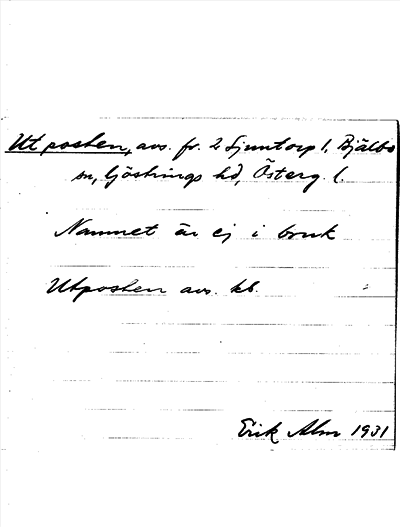 Utposten, avs. fr. 2 Ljuntorp 1, Bjälbo
sn, Göstrings hd, Österg l.
Namnet är ej i bruk
Utposten avs. kb.
Erik Alm 1931